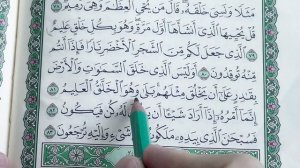 مَثَلًا وَنَسِيَ خَلْقَهُۥ قَالَ مَن يُحْيِ ٱلْعِظَٰمَ وَهِيَ رَمِيمٌ ٧٨
قُلْ يُحْيِيهَا ٱلَّذِيٓ أَنشَأَهَآ أَوَّلَ مَرَّةٍ وَهُوَ بِكُلِّ خَلْقٍ عَلِيمٌ
٧٩ ٱلَّذِي جَعَلَ لَكُم مِّنَ ٱلشَّجَرِ ٱلْأَخْضَرِ نَارًا فَإِذَآ أَنتُم
مِّنْهُ تُوقِدُونَ ٨٠ أَوَلَيْسَ ٱلَّذِي خَلَقَ ٱلسَّمَٰوَٰتِ وَٱلْأَرْضَ
بِقَٰدِرٍ عَلَىٰٓ أَن يَخْلُقَ مِثْلَهُم بَلَىٰ وَهُوَ ٱلْخَلَّٰقُ ٱلْعَلِيمُ ٨١
إِنَّمَآ أَمْرُهُۥٓ إِذَآ أَرَادَ شَيْـًٔا أَن لَهُۥ كُن فَيَكُونُ ٨٢
فَسُبْحَٰنَ ٱلَّذِي بِيَدِهِۦ مَلَكُوتُ شَيْءٍ وَإِلَيْهِ تُرْجَعُونَ ٨٣